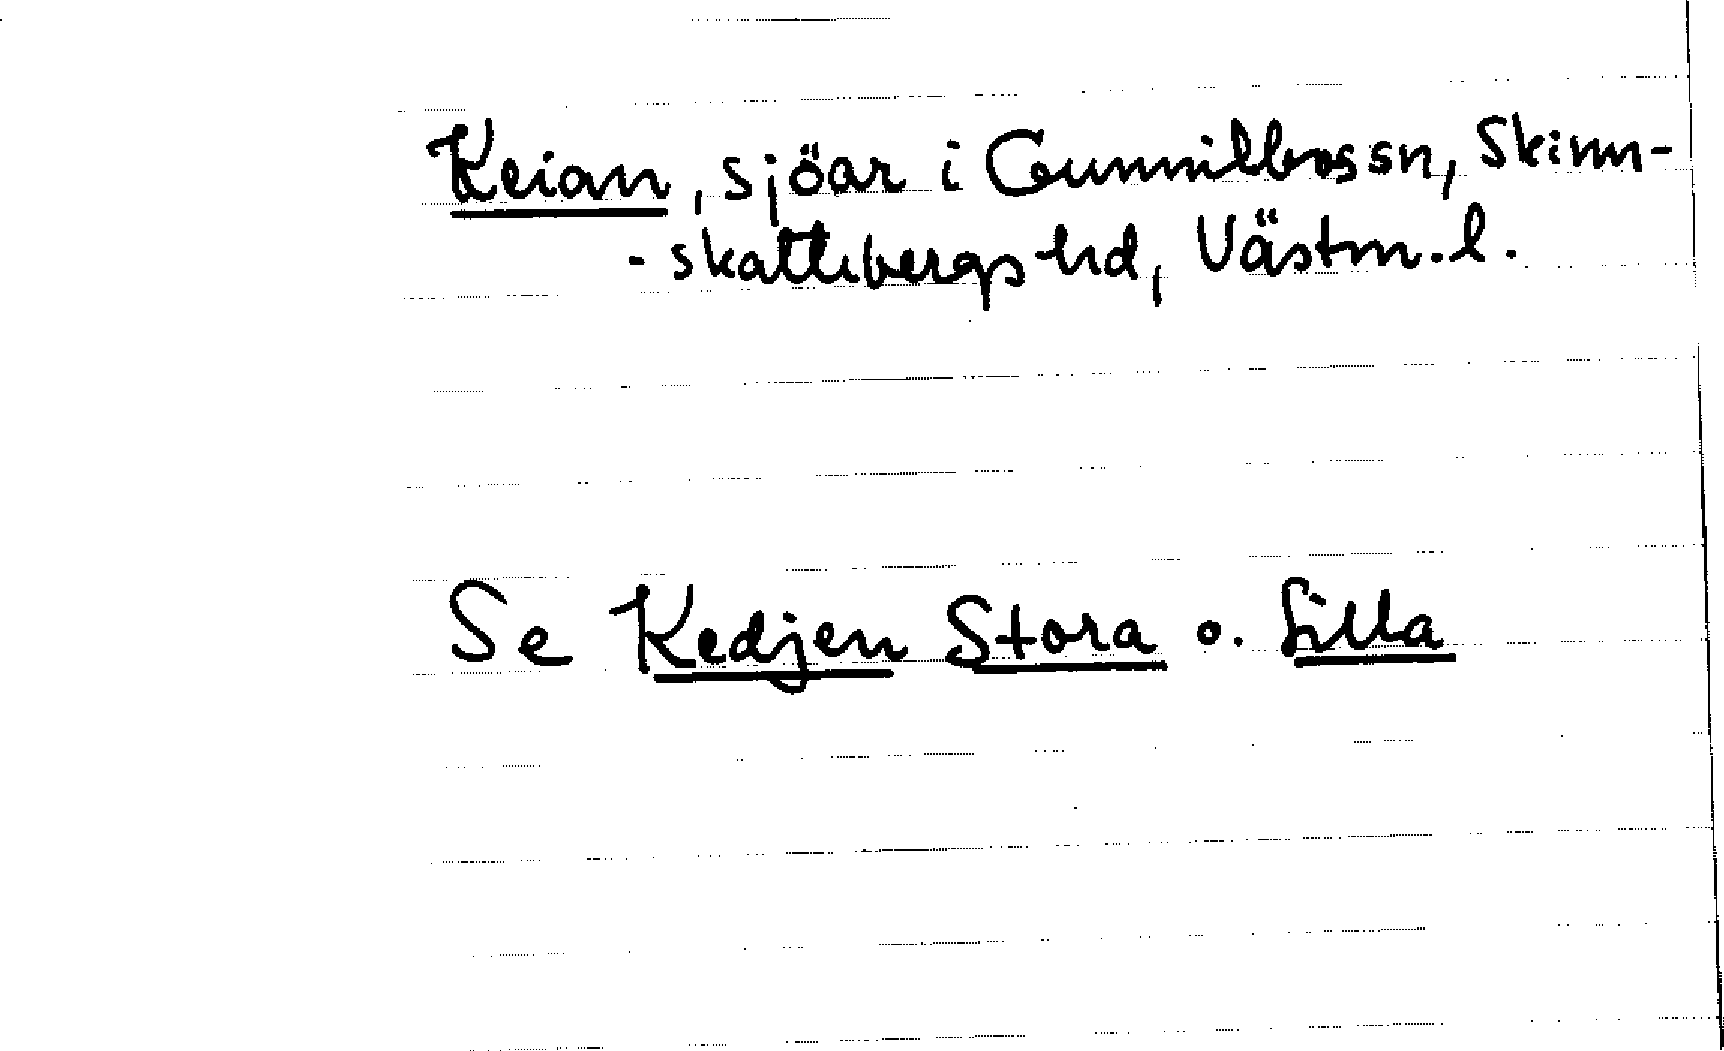 Keian, sjöar i Gunnilbos sn, Skinn-
- skattebergs hd, Västm. l.
Se Kedjen Stora o. Lilla